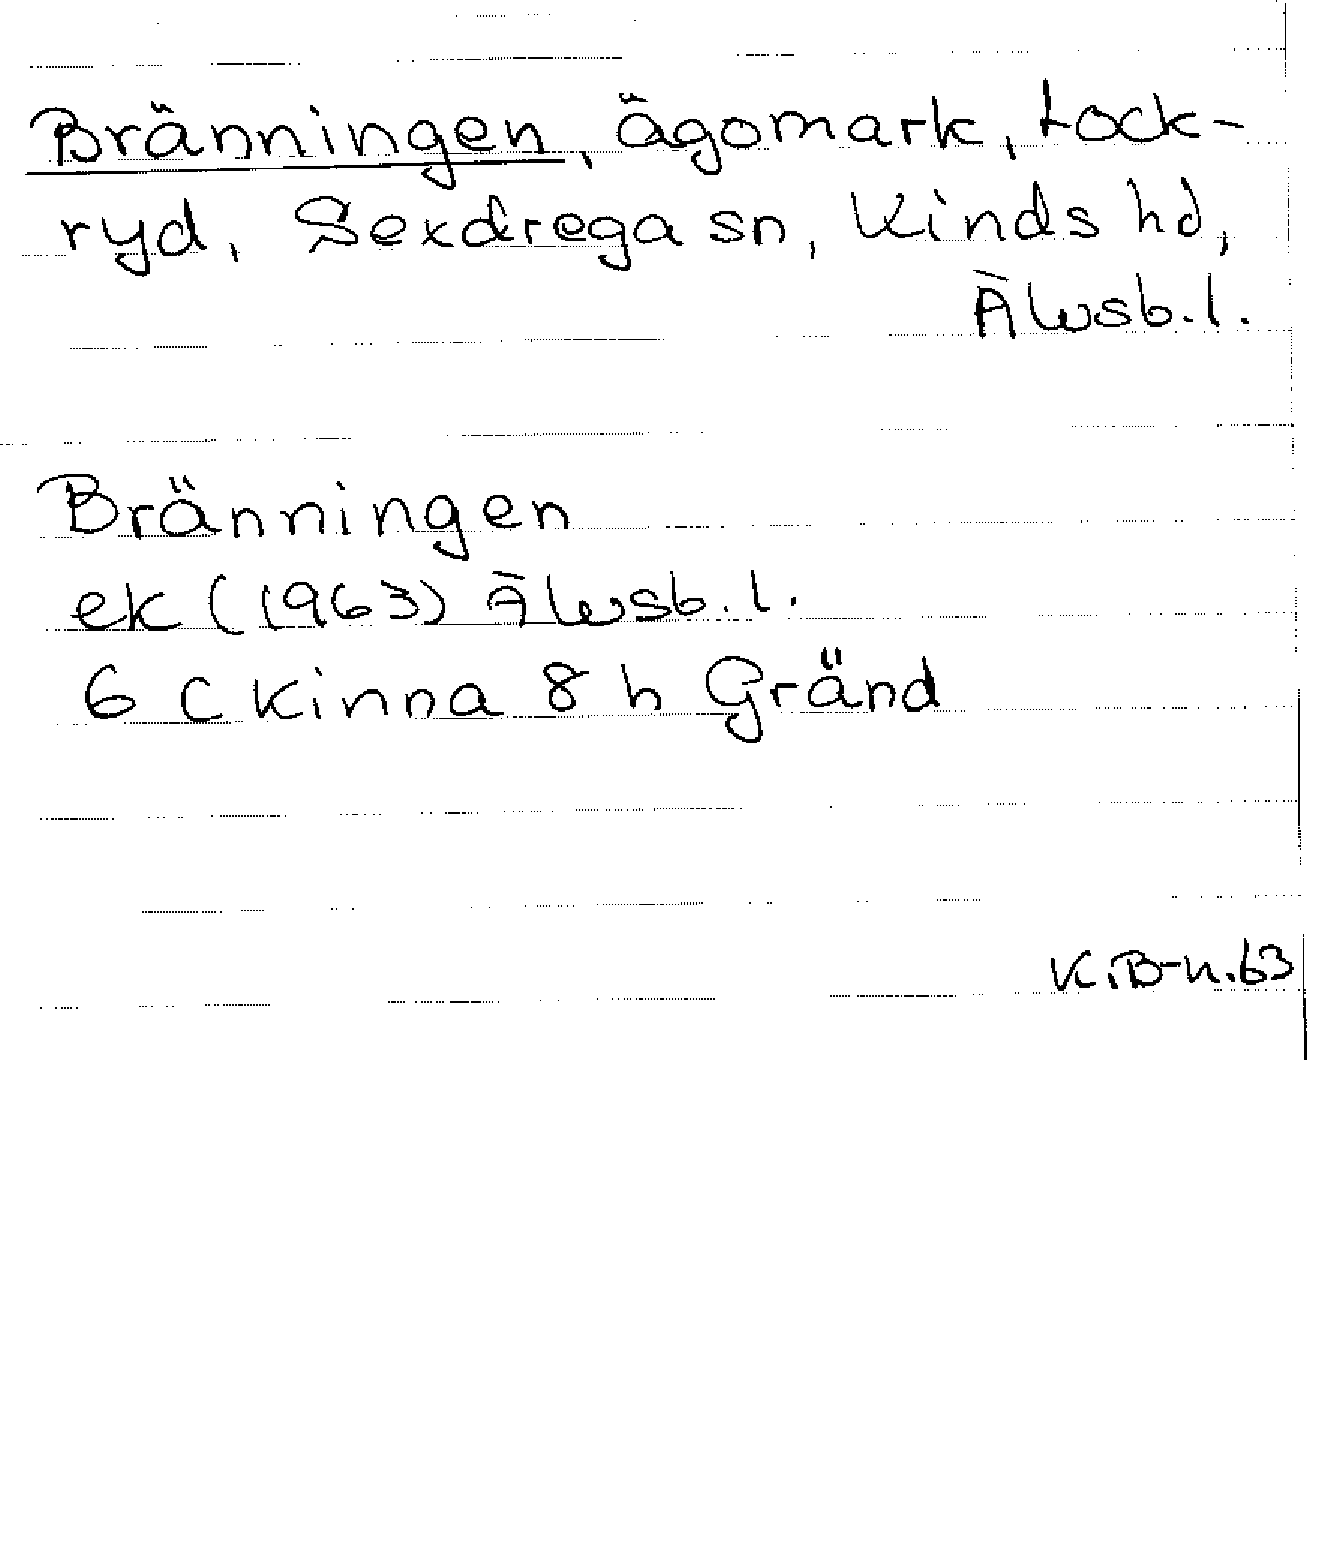 Bränningen, ägomark, Lock-
ryd, Sexdrega sn, Kinds hd,
Älvsb.l.
Bränningen
ek (1963) Älvsb.l.
6 C Kinna 8 h Gränd
K.B-n.63